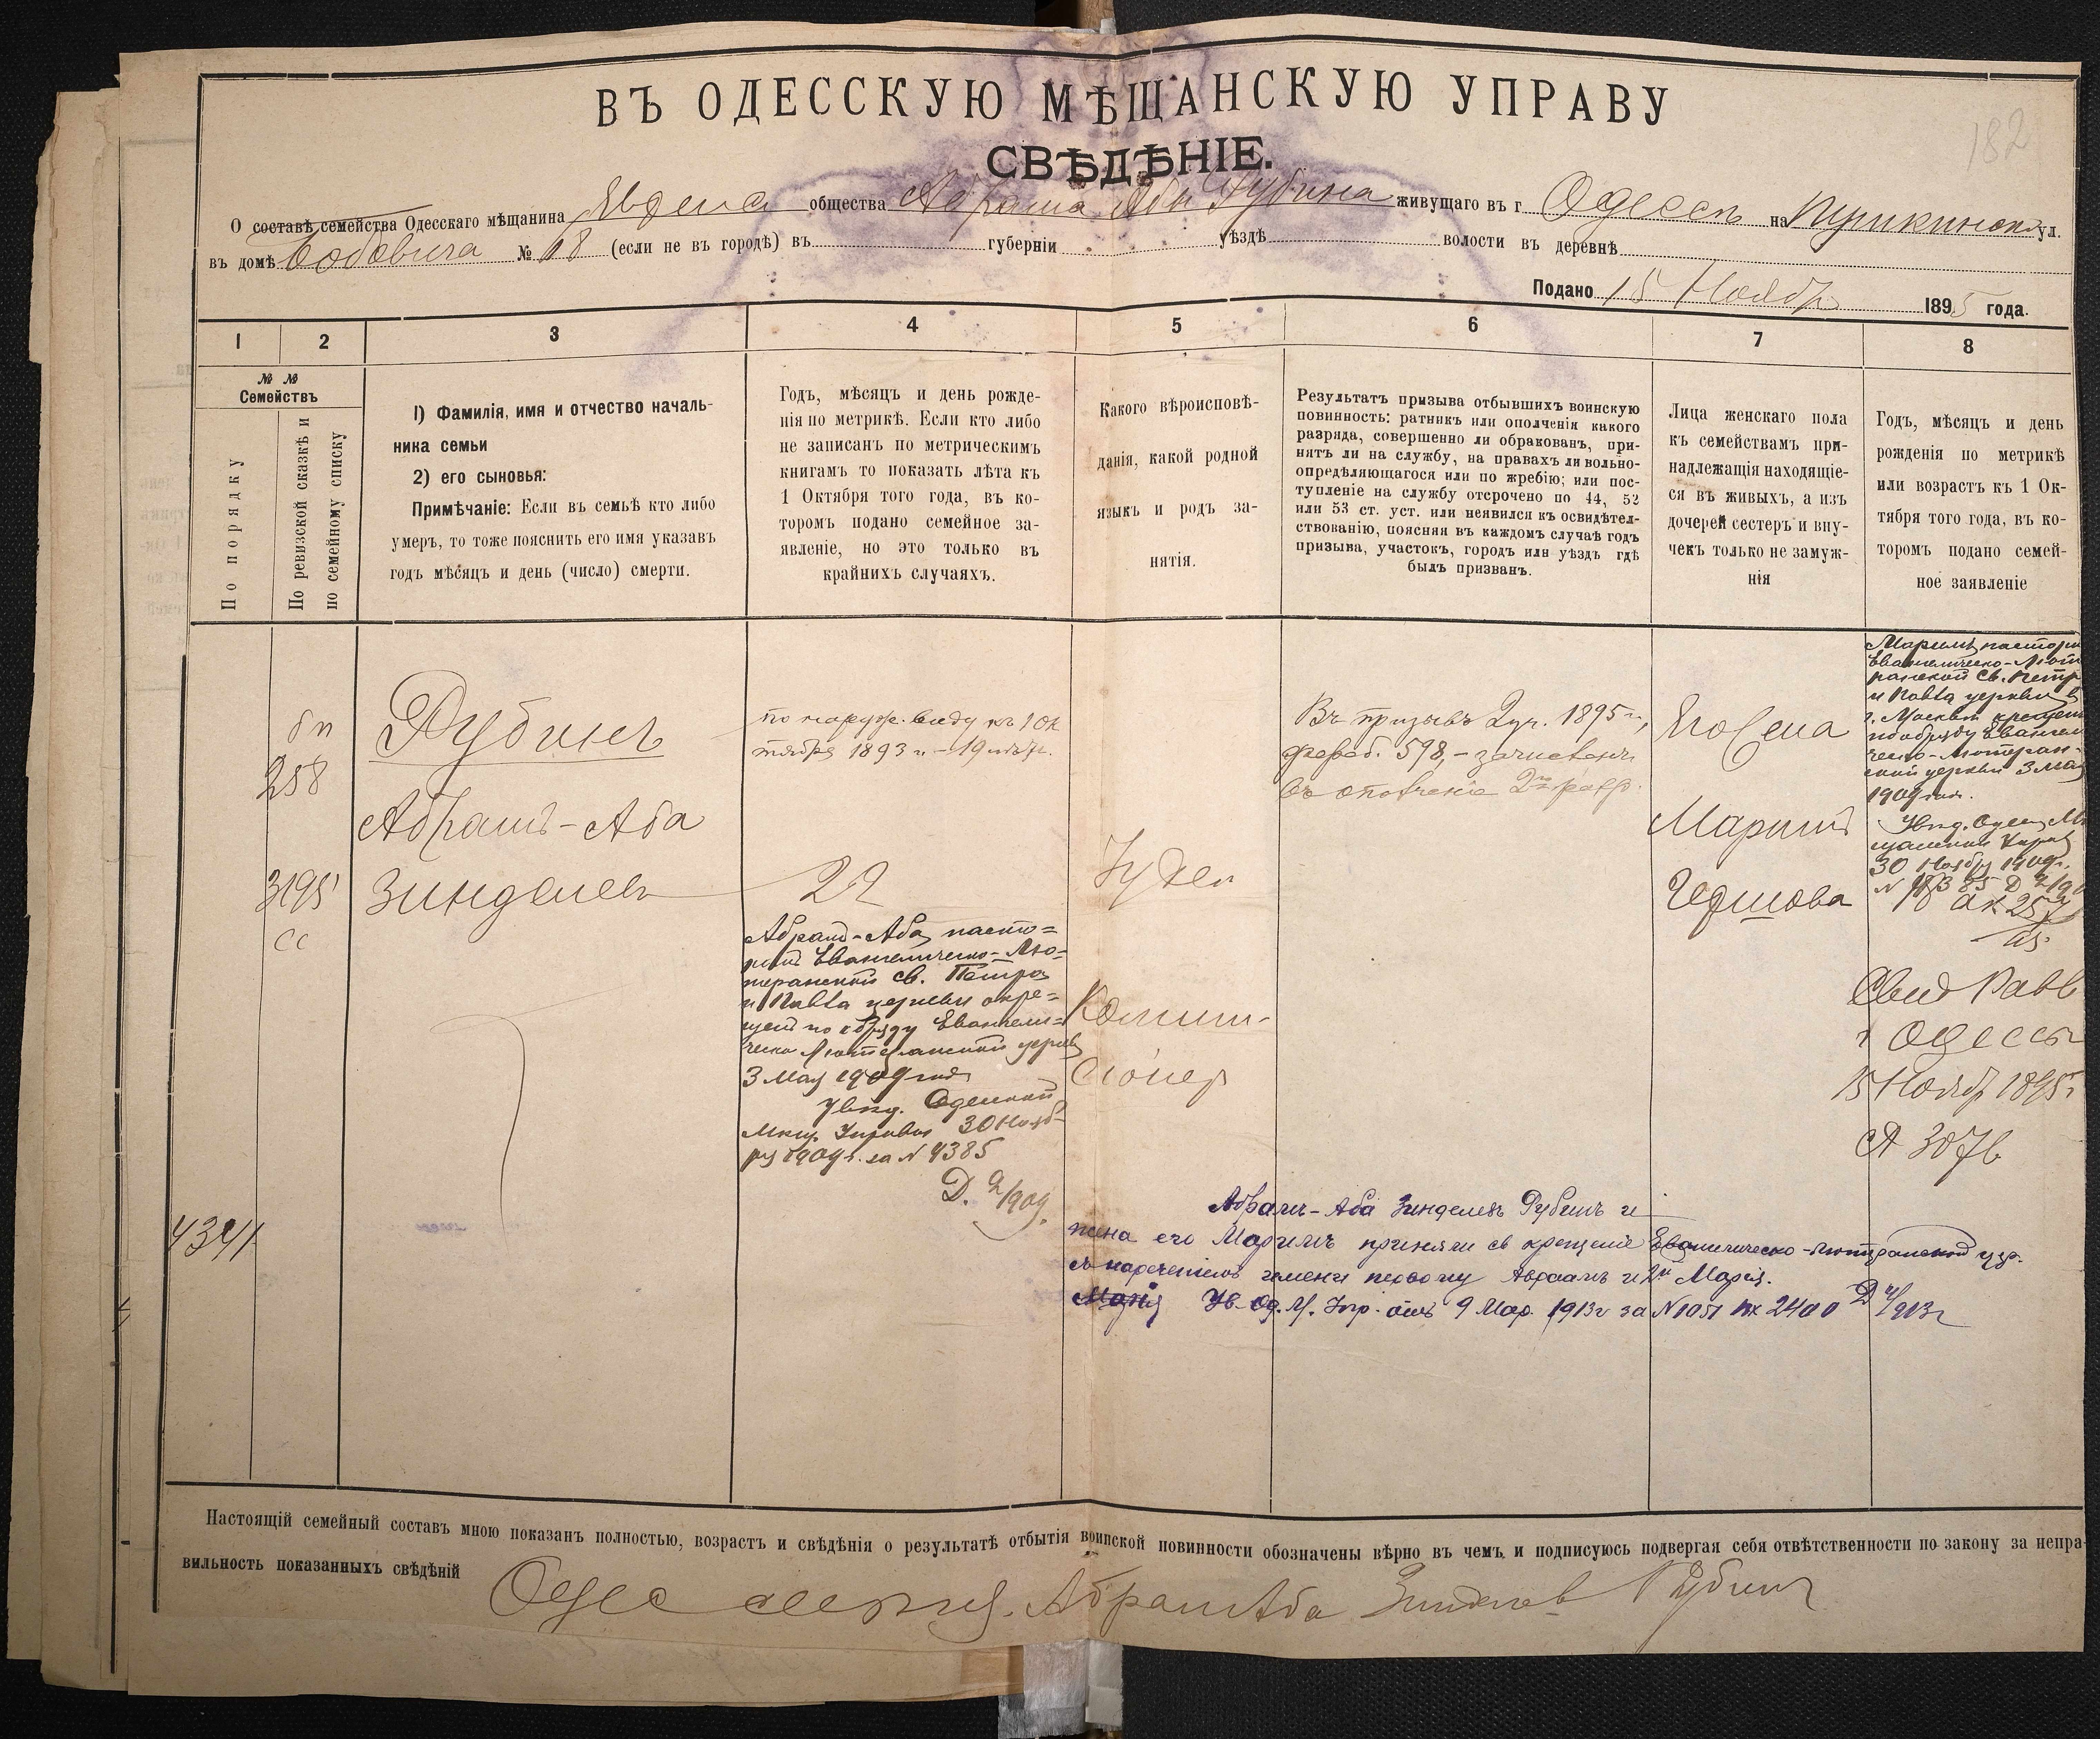 182
ВЪ ОДЕССКУЮ МѢЩАНСКУЮ УПРАВУ
СВѢДѢНІЕ.
О составѣ семейства Одесскаго мѣщанина Евреис общества Абрама Абы Рубина живущаго въ г Одессѣ на Пушкинской ул.
въ домѣ № 18 (если не въ городѣ) въ губерніи уѣздѣ волости въ деревнѣ
Подано 15 Ноября 1895 года.
1 2 3 4 5 6 7 8
№ № Семействъ
По порядку
По ревизской сказкѣ и по семейному списку
1) Фамилія, имя и отчество началь-
ника семьи
2) его сыновья:
Примѣчаніе: Если въ семьѣ кто либо
умеръ, то тоже пояснить его имя указавъ
годъ мѣсяцъ и день (число) смерти.
Годъ, мѣсяцъ и день рожде-
нія по метрикѣ. Если кто либо
не записанъ по метрическимъ
книгамъ то показать лѣта къ
1 Октября того года, въ ко-
торомъ подано семейное за-
явленіе, но это только въ
крайнихъ случаяхъ.
Какого вѣроисповѣ-
данія, какой родной
языкъ и родъ за-
нятія.
Результатъ призыва отбывшихъ воинскую
повинность: ратникъ или ополченія какого
разряда, совершенно ли обракованъ, при-
нятъ ли на службу, на правахъ ли вольно-
опредѣляющагося или по жребію; или пос-
тупленіе на службу отсрочено по 44, 52
или 53 ст. уст. или неявился къ освидѣтел-
ствованію, поясняя въ каждомъ случаѣ годъ
призыва, участокъ, городъ или уѣздъ гдѣ
былъ призванъ.
Лица женскаго пола
къ семействамъ при-
надлежащія находящіе-
ся въ живыхъ, а изъ
дочерей сестеръ и вну-
чекъ только не замуж-
нія
Годъ, мѣсяцъ и день
рожденія по метрикѣ
или возрастъ къ 1 Ок-
тября того года, въ ко-
торомъ подано семей-
ное заявленіе
бп
258
3195
сс
4341
Рубинъ
Абрамъ-Аба
Зинделев
по наруж. виду къ 1 Ок
тября 1893 г. – 19 лѣтъ.
22
Абрамъ-Аба пасто-
ромъ Евангелическо-Лю-
теранской св. Петра
и Павла церкви окре-
щен по обряду Евангели-
ческо Лютеранской церкви
3 Мая 1909 года
Увѣд. Одесской
Мѣщ. Управы 30 Нояб-
ря 1909 г. за № 4385
Д. 2/909.
Іудей
Комми-
сіонер
Въ призывъ 2 уч. 1895 г.,
жереб. 598, – зачисленъ
въ ополченіе 2го разр.
Его жена
Маримъ
Маримъ пасторо
Евангелическо-Люте
ранской Св. Петр
и Павла церкви в
г. Москвѣ крещен
по обряду Евангел
ческо-Лютеран-
ской церкви 3 мая
1909 года.
Увѣд. Одесс. Мѣ
щанской Управ
30 Ноября 1909 г.
Свид Равв
г Одессы
15 Ноябр 1895 г
№ 3076
Абрамъ-Аба Зинделевъ Рубинъ и
жена его Маримъ приняли св крещеніе Евангелическо-лютеранской цер.
съ нареченіемъ имени первому Авраамъ и 2й Марія.
Марія Ув. Од. М. Упр. отъ 9 Мар. 1913 г за № 1051 вх 2400 Д 4/913 г
Настоящій семейный составъ мною показанъ полностью, возрастъ и свѣдѣнія о результатѣ отбытія воинской повинности обозначены вѣрно въ чемъ и подписуюсь подвергая себя отвѣтственности по закону за непра-
вильность показанныхъ свѣдѣній
Абрам Аба Зинделев Рубинъ